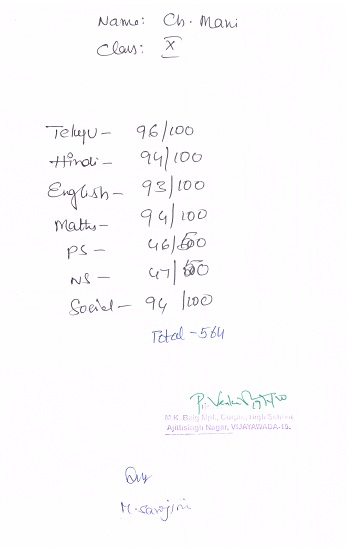 Name: Ch. Mani
Class: X
Telugu - 96/100
Hindi - 94/100
English - 93/100
Maths - 94/100
PS - 46/50
NS - 47/50
Social - 94/100
Total - 564
Ajithsingh Nagar, VIJAYAWADA-15.
M. Sarojini